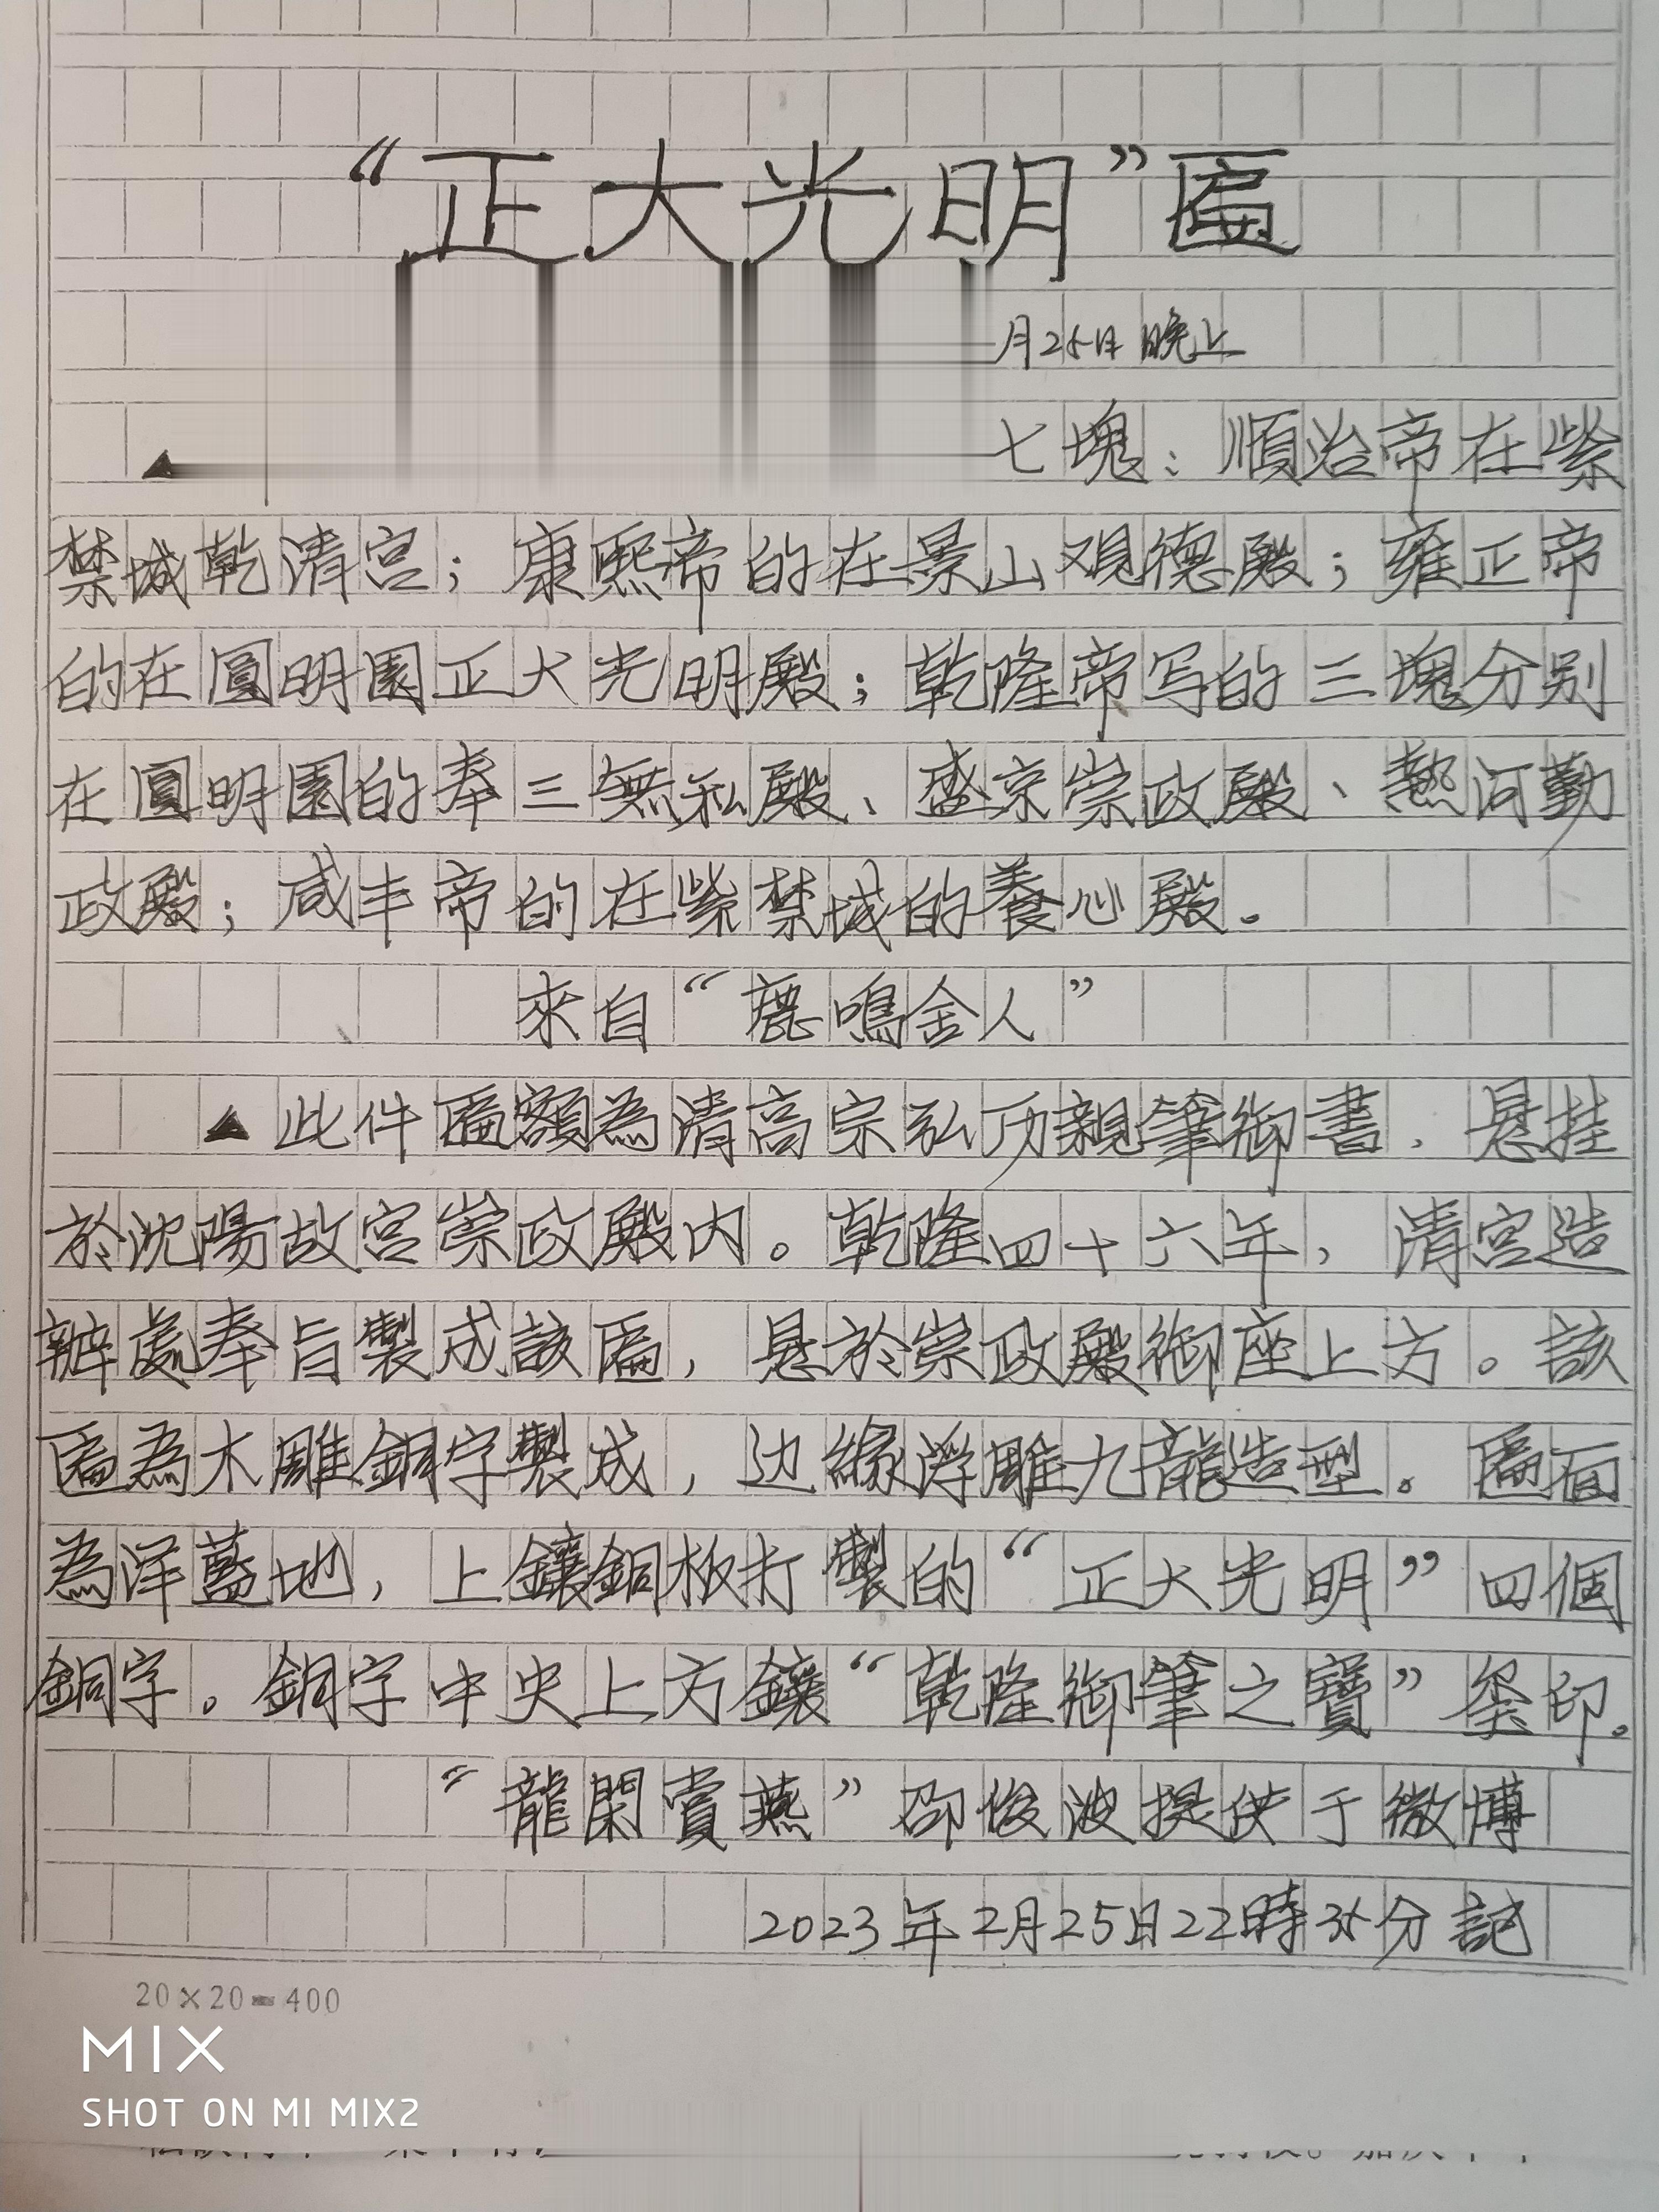 “正大光明”匾
月25日晚上
七塊：順治帝在紫
禁城乾清宮；康熙帝的在景山观德殿；雍正帝
的在圓明園正大光明殿；乾隆帝写的三塊分别
在圓明園的奉三無私殿、盛京崇政殿、熱河勤
政殿；咸丰帝的在紫禁城的養心殿。
來自“鹿鳴金人”
▲此件匾額為清高宗弘历親筆御書，悬挂
於沈陽故宮崇政殿内。乾隆四十六年，清宮造
辦處奉旨製成該匾，悬於崇政殿御座上方。該
匾為木雕銅字製成，边緣浮雕九龍造型。匾面
為洋藍地，上鑲銅板打製的“正大光明”四個
銅字。銅字中央上方鑲“乾隆御筆之寶”玺印。
“龍閑賞燕”邵俊波提供于微博
2023年2月25日22時35分記
20×20=400
MIX
SHOT ON MI MIX2